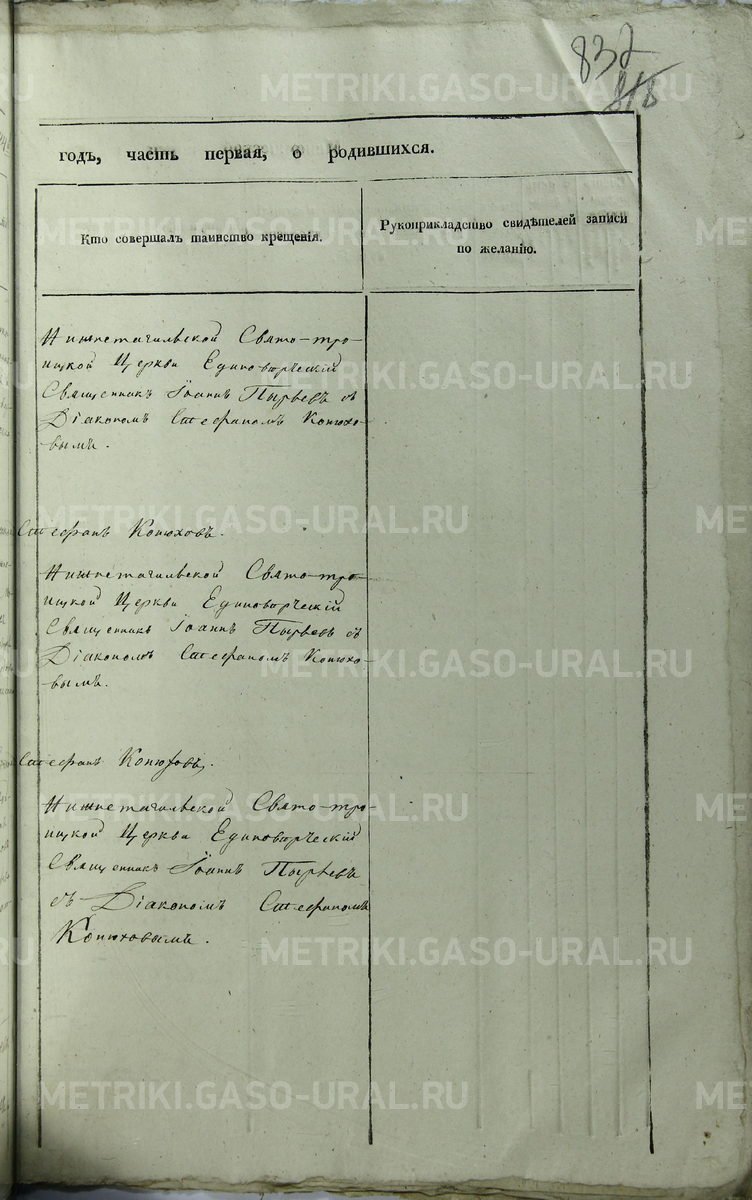 832
818
годъ, часть первая, о родившихся.
Кто совершалъ таинство крещенія.
Рукоприкладство свидѣтелей записи
по желанію.
Нижнетагильской Свято-тро-
ицкой Церкви Единовѣрческій
Священникъ Іоаннъ Пырьевъ съ
Діакономъ Стефаномъ Конюхо-
вымъ.
Стефанъ Конюховъ.
Нижнетагильской Свято-тро-
ицкой Церкви Единовѣрческій
Священникъ Іоаннъ Пырьевъ съ
Діакономъ Стефаномъ Конюхо-
вымъ.
Стефанъ Конюховъ.
Нижнетагильской Свято-тро-
ицкой Церкви Единовѣрческій
Священникъ Іоаннъ Пырьевъ
съ Діакономъ Стефаномъ
Конюховымъ.
METRIKI.GASO-URAL.RU